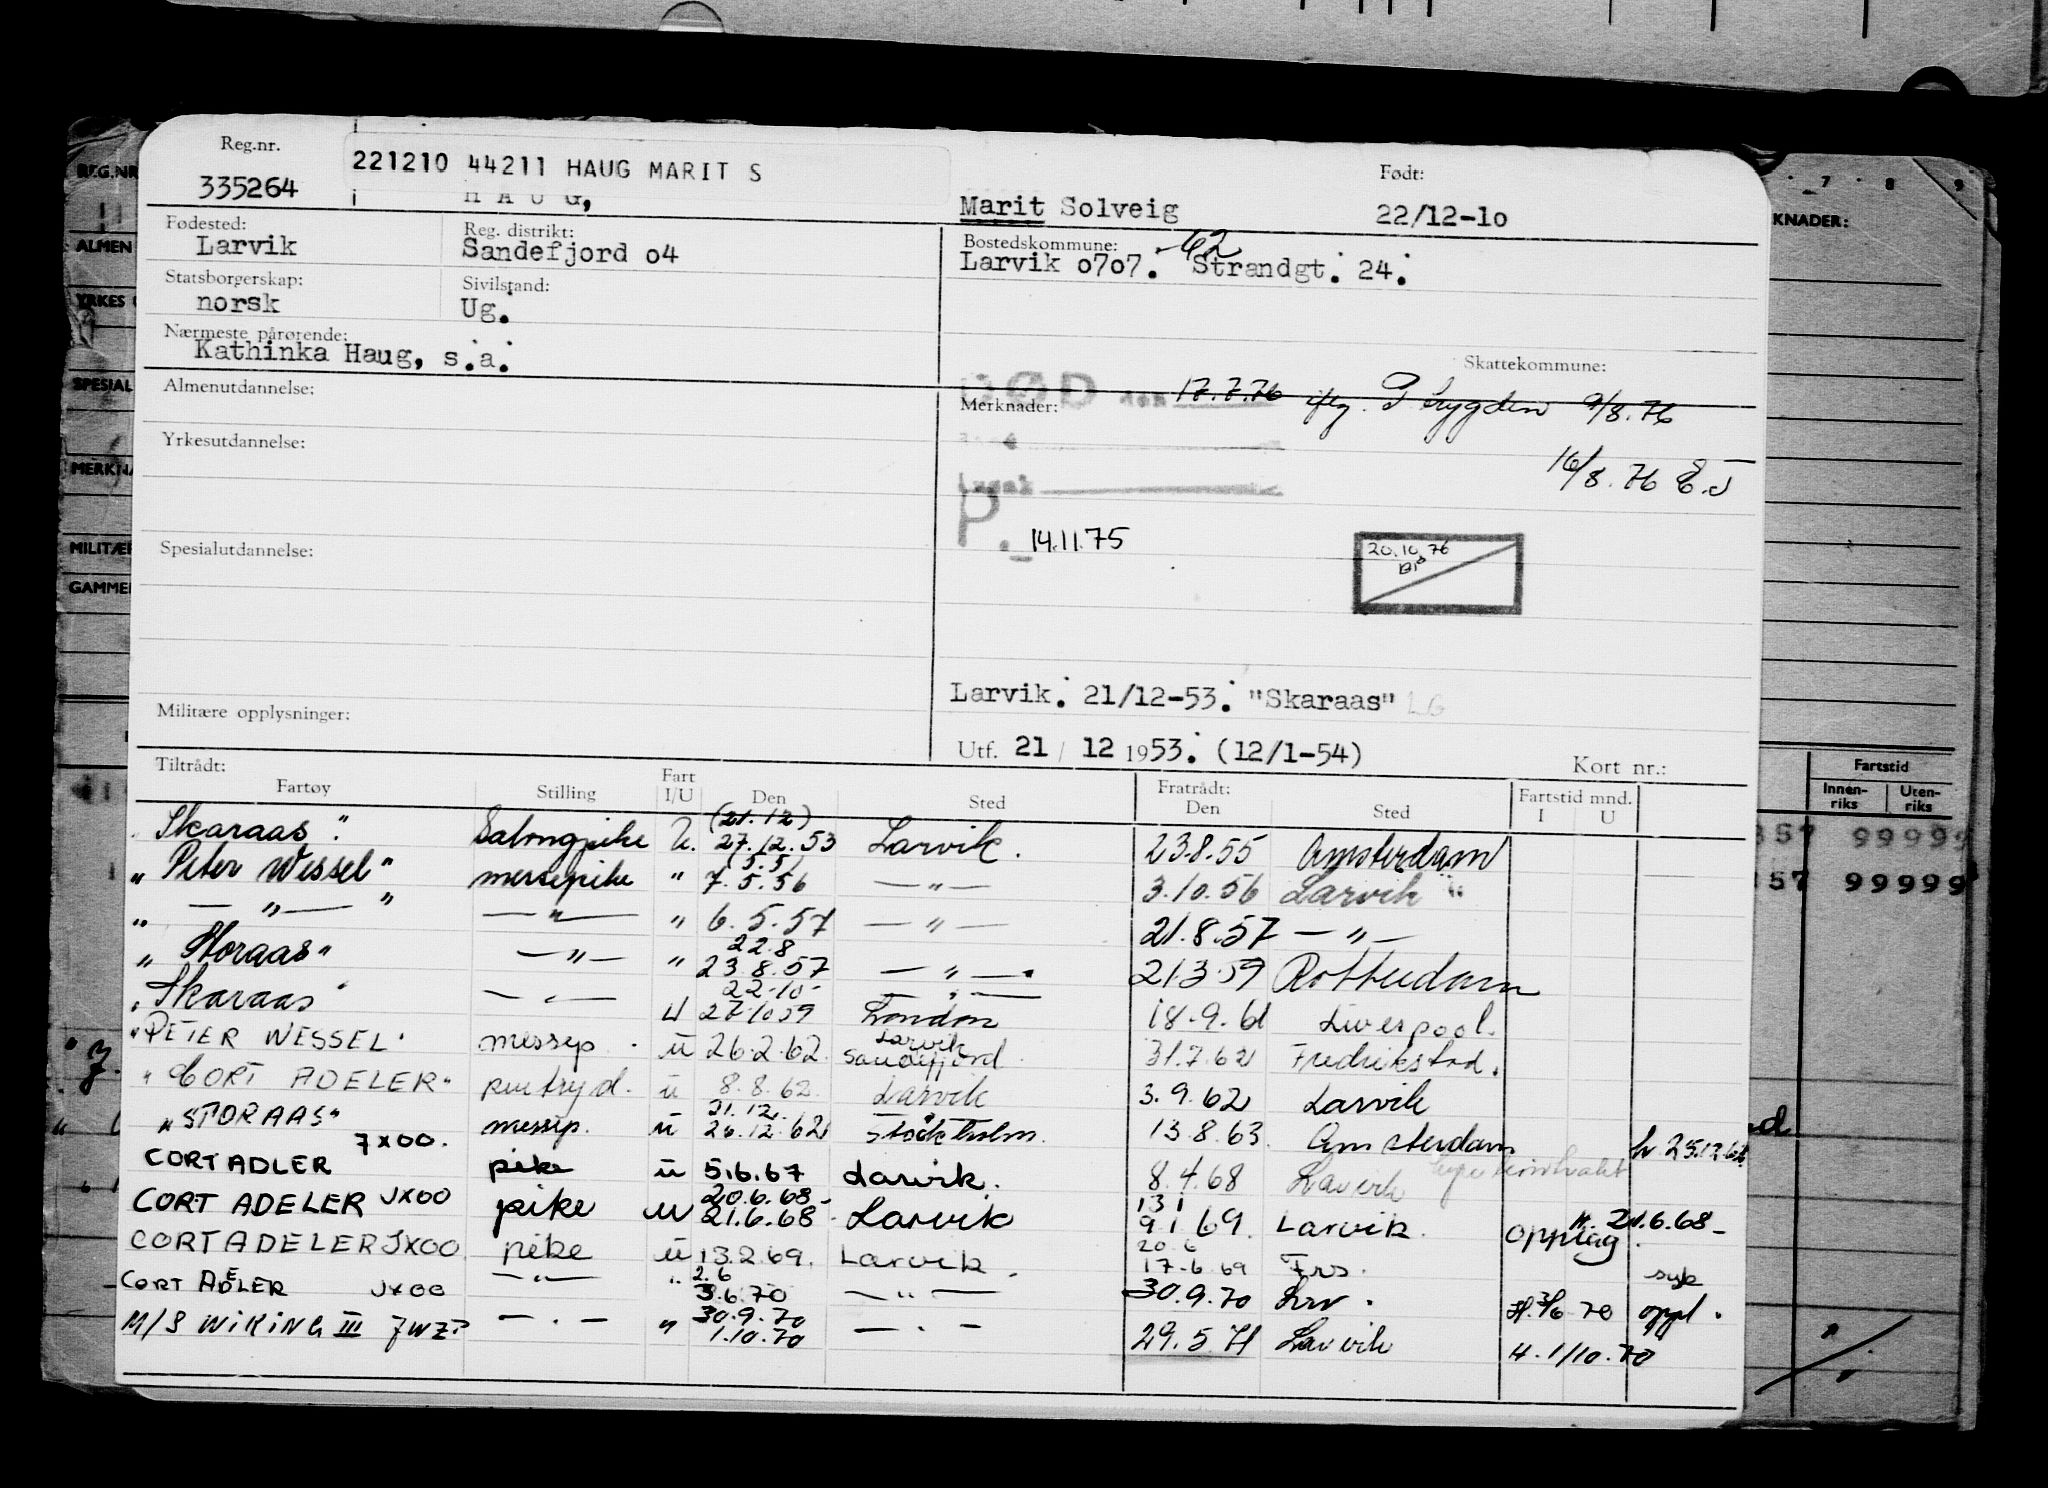 Reg.nr.
335264
221210 44211 HAUG MARIT S
HAUG,
Marit Solveig
Født:
22/12-10
Fødested:
Larvik
Reg. distrikt:
Sandefjord o4
Bostedskommune:
Larvik o7o7. Strandgt. 24.
62
Statsborgerskap:
norsk
Sivilstand:
Ug.
Nærmeste pårørende:
Kathinka Haug, s.a.
Skattekommune:
Almenutdannelse:
Merknader:
DØD den 17.7.76 iflg. P trygden 9/8.76
Yrkesutdannelse:
16/8.76 E.J
P. 14.11.75
Spesialutdannelse:
20.10.76
Larvik. 21/12-53. "Skaraas" LG
Militære opplysninger:
Utf. 21 / 12 1953. (12/1-54)
Kort nr.:
Tiltrådt:
Fartøy Stilling Fart I/U Den Sted Fratrådt: Den Sted Fartstid mnd. I U
"Skaraas" Salongpike U. (21.12) 27.12.53 Larvik. 23.8.55 Amsterdam
"Peter Wessel" messepike " (5.5) 7.5.56 — " — 3.10.56 Larvik
" — " — " — " — " 6.5.57 — " — 21.8.57 — " —
"Storaas" — " — " 22.8 23.8.57 — " — 21.3.59 Rotterdam
"Skaraas" — " — U 22.10 27.10.59 — " — London 18.9.61 Liverpool.
"PETER WESSEL" messep. u 26.2.62 Larvik Sandefjord 31.7.62 Fredrikstad.
"CORT ADELER" pentryd. u 8.8.62 Larvik 3.9.62 Larvik
"STORAAS" messep. u 21.12. 26.12.62 Stockholm. 13.8.63. Amsterdam
CORT ADLER JXOO. pike u 5.6.67 Larvik. 8.4.68 Larvik
CORT ADELER JXOO pike u 20.6.68- 21.6.68- Larvik 13 1 9.1.69. Larvik. opplag H. 21.6.68-
CORT ADELER JXOO pike u 13.2.69. Larvik. 20.6 17.6.69 Frs. syk
CORT ADELER JXOO — " — " 2.6 3.6.70 — " — 30.9.70 Lrv. H. 3/6 70 oppl.
M/S WIKING III JWZP — " — " 30.9.70 1.10.70 — " — 29.5.71 Larvik H. 1/10.70
REG.NR
ALMEN
YRKES
SPESIAL
MERKNA
MILITÆR
GAMMEL
7 8 9
KNADER:
Fartstid
Innen-riks Uten-riks
357 99999
357 99999